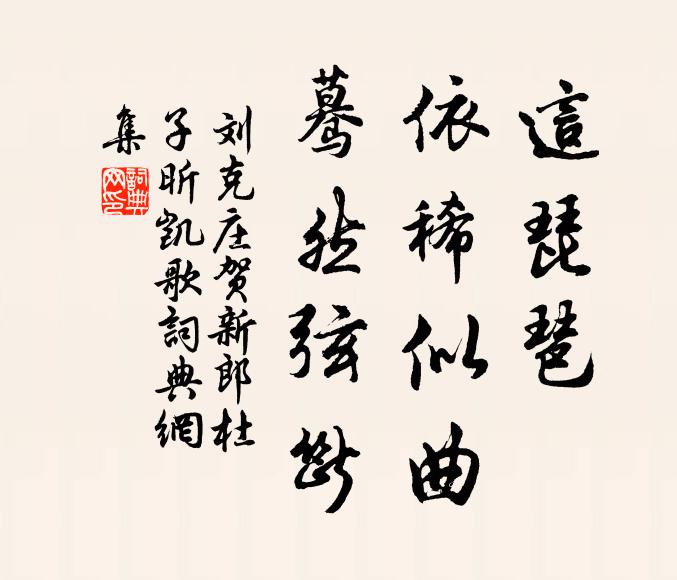 這琵琶
依稀似曲
驀然弦斷
刘克庄贺新郎杜
子昕凯歌詞典網
集
詞典
网印